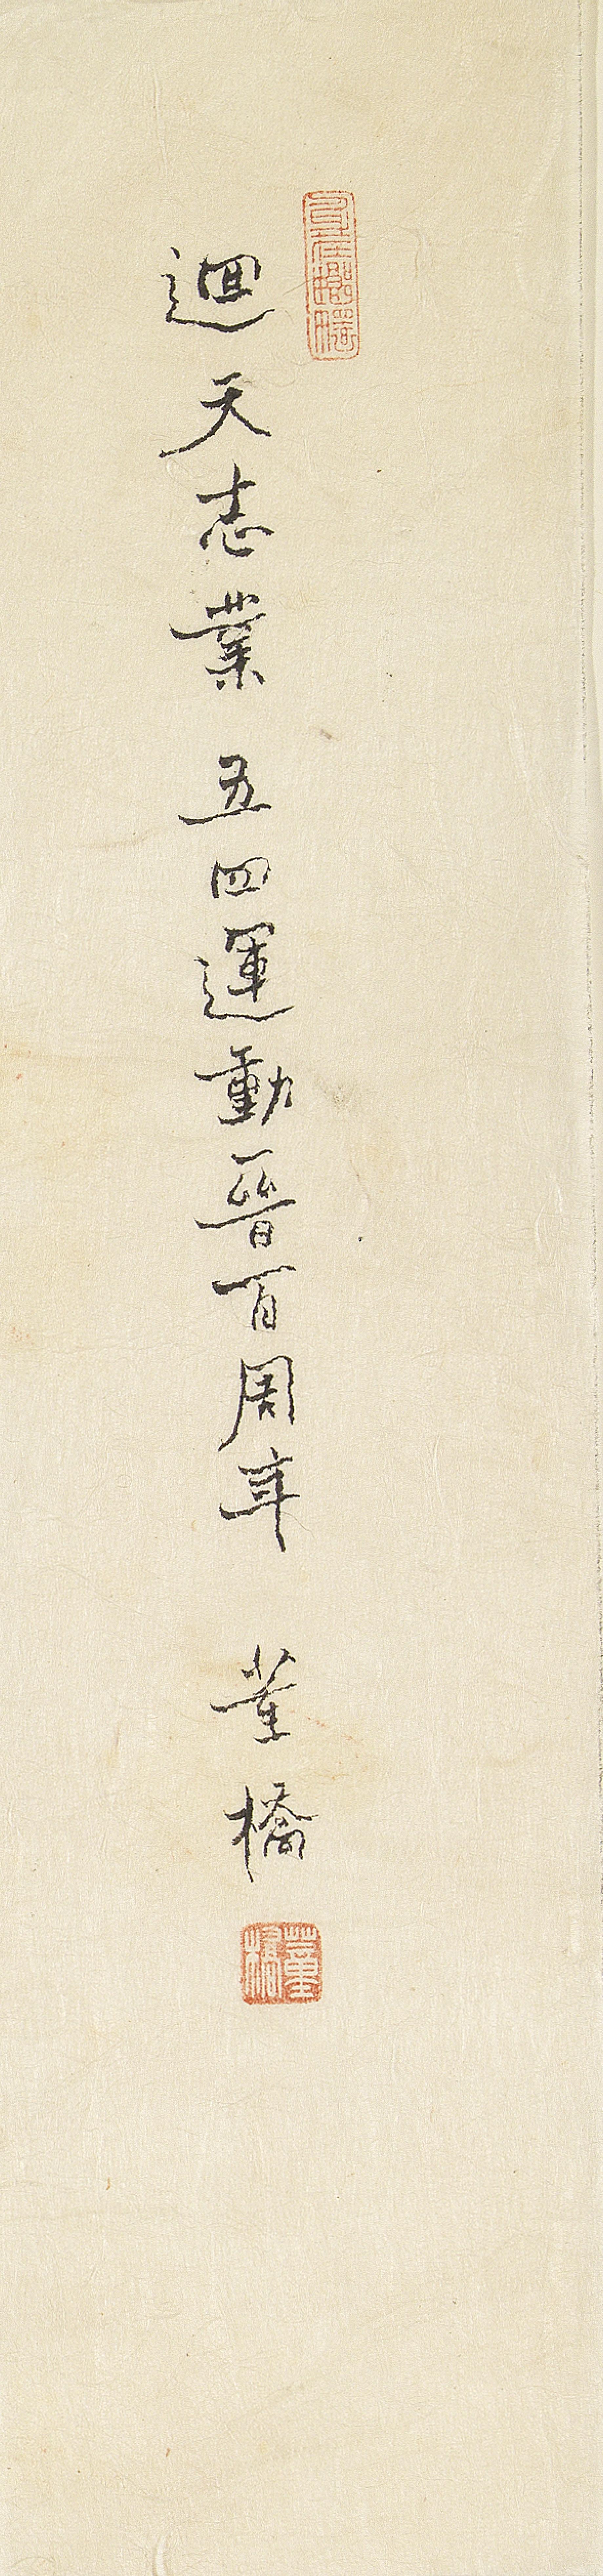 迴天志業 五四運動晉百周年 董橋
董橋